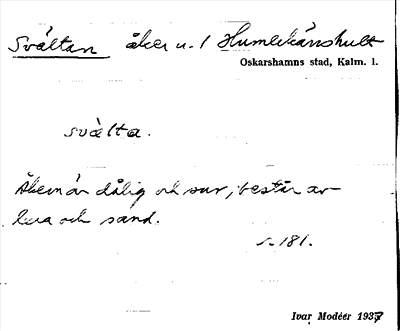 Svältan åker u. 1 Humlekärrshult
Oskarshamns stad, Kalm. l.
svälta.
Åkern är dålig och sur; består av
lera och sand.
s. 181.
Ivar Modéer 1937